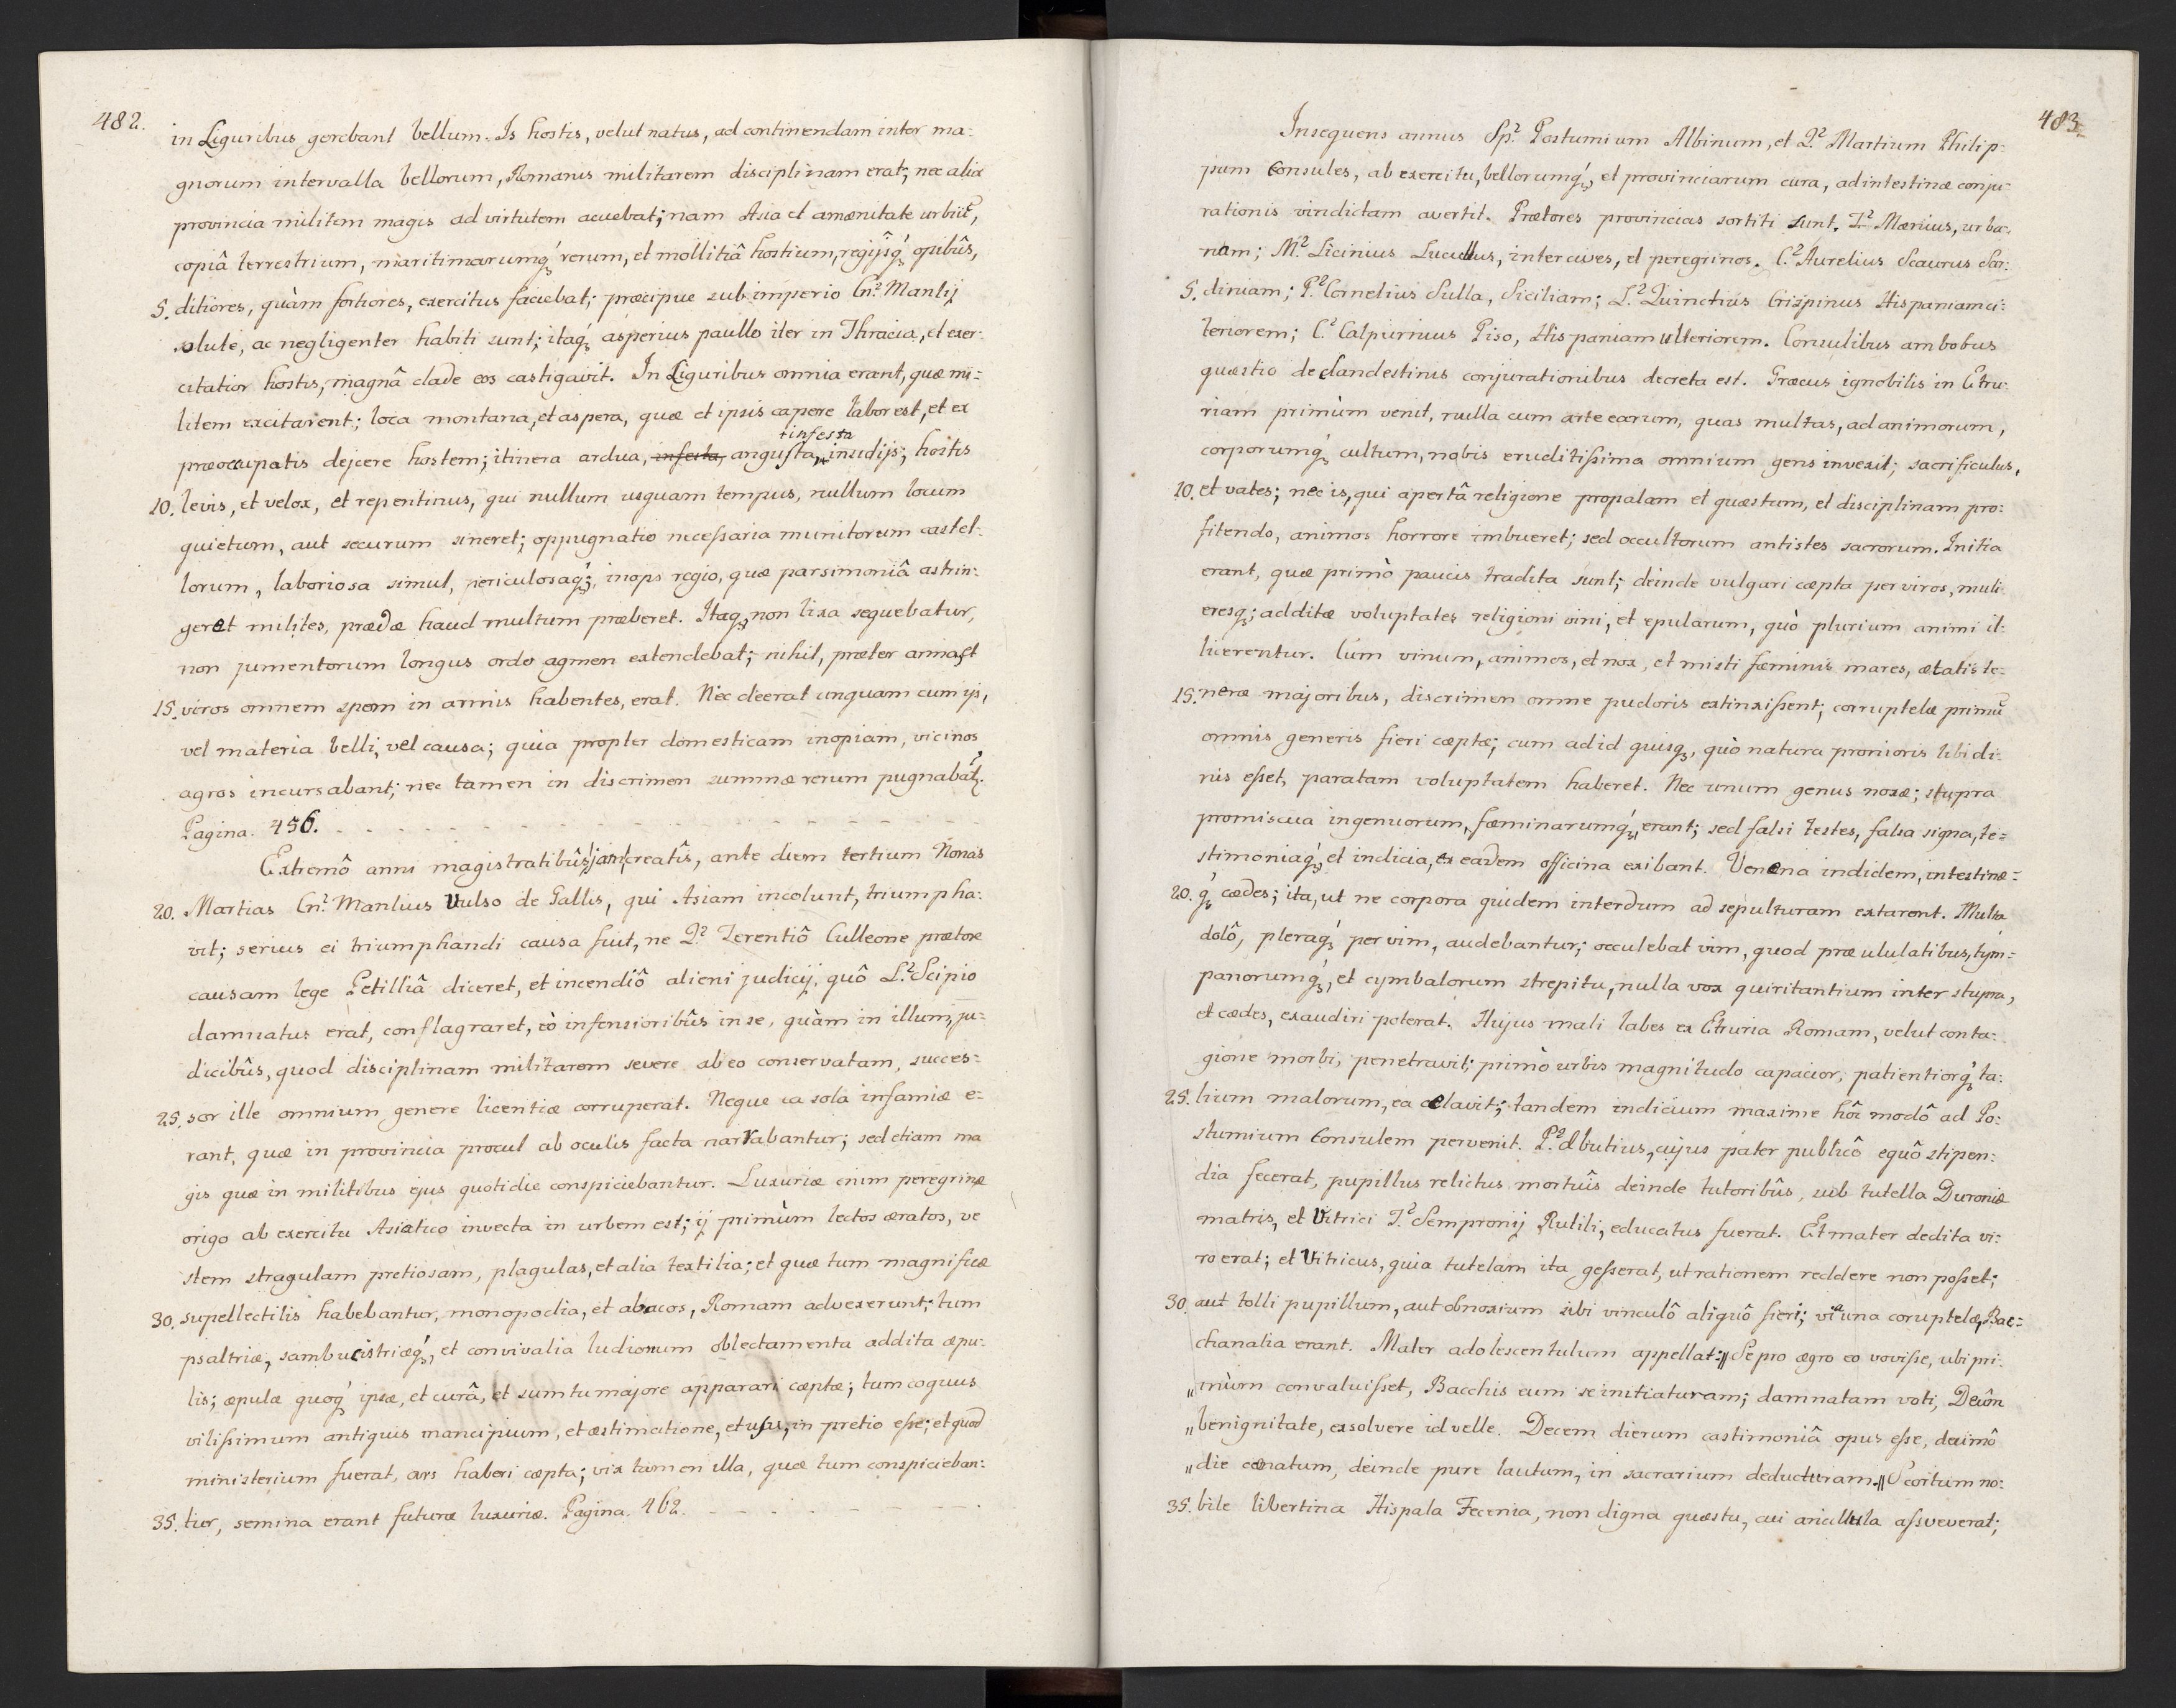 482.
in Liguribus gerebant bellum. Is hostis, velut natus, ad continendam inter ma:
gnorum intervalla bellorum, Romanis militarem disciplinam erat; nec alia
provincia militem magis ad virtutem acuebat; nam Asia et amœnitate urbiū,
copiâ terrestrium, maritimarumq́ꝫ rerum, et mollitiâ hostium, regijsq́ꝫ opibûs,
5. ditiores, quàm fortiores, exercitus faciebat; præcipue sub imperio Cn.² Manlij
solutè, ac negligenter habiti sunt; itaq́ꝫ asperius paullo iter in Thracia, et exer:
citatior hostis, magnâ clade eos castigavit. In Liguribus omnia erant, quæ mi=
litem excitarent; loca montana, et aspera, quæ et ipsis capere labor est, et ex
præoccupatis dejcere hostem; itinera ardua, infesta, angusta, +infesta insidijs; hostis
10. levis, et velox, et repentinus, qui nullum usquam tempus, nullum locum
quietum, aut securum sineret; oppugnatio necessaria munitorum castel:
lorum, laboriosa simul, periculosaq́ꝫ; inops regio, quæ parsimoniâ astrin:
geret milites, prædæ haud multum præberet. Itaqꝫ non lixa sequebatur,
non jumentorum longus ordo agmen extendebat; nihil, præter arma, et
15. viros omnem spem in armis habentes, erat. Nec deerat unquam cum ijs,
vel materia belli, vel causa; quia propter domesticam inopiam, vicinos
agros incursabant; nec tamen in discrimen summæ rerum pugnabāt.
Pagina. 456. - - - - - - - - - - - - - - -
Extremô anni magistratibûs jam creatîs, ante diem tertium Nonas
20. Martias Cn.² Manlius Vulso de Gallis, qui Asiam incolunt, triumpha:
vit; serius ei triumphandi causa fuit, ne Q.² Terentiô Culleone prætore
causam lege Petilliâ diceret, et incendiô alieni judicij, quô L.² Scipio
damnatus erat, conflagraret, eò infensioribûs in se, quàm in illum, ju=
dicibûs, quod disciplinam militarem severe ab eo conservatam, succes=
25. sor ille omnium genere licentiæ corruperat. Neque ea sola infamiæ e=
rant, quæ in provincia procul ab oculis facta narrabantur; sed etiam ma
gis quæ in militibus ejus quotidie conspiciebantur. Luxuriæ enim peregrinæ
origo ab exercitu Asiatico invecta in urbem est; ij primùm lectos æratos, ve
stem stragulam pretiosam, plagulas, et alia textilia; et quæ tum magnificæ
30. supellectilis habebantur, monopodia, et abacos, Romam advexerunt; tum
psaltriæ, sambucistriæq́ꝫ, et convivalia ludionum oblectamenta addita æpu:
lis; æpulæ quoq́ꝫ ipsæ, et curâ, et sumtu majore apparari cæptæ; tum coquus
vilissimum antiquis mancipium, et æstimatione, et usu, in pretio esse; et quod
ministerium fuerat, ars haberi cæpta; vix tamen illa, quæ tum conspicieban:
35. tur, semina erant futuræ luxuriæ. Pagina. 462. - - - - - - - -
483.
Insequens annus Sp.² Postumium Albinum, et Q.² Martium Philip:
pum Consules, ab exercitu, bellorumq́ꝫ, et provinciarum cura, ad intestinæ conju:
rationis vindictam avertit. Prætores provincias sortiti sunt. T.² Mænius, urba:
nam; M.² Licinius Lucullus, inter cives, et peregrinos. C.² Aurelius Scaurus Sar:
5. diniam; P.² Cornelius Sulla, Siciliam; L.² Quinctius Crispinus Hispaniam ci:
teriorem; C.² Calpurnius Piso, Hispaniam ulteriorem. Consulibus ambobus
quæstio de clandestinis conjurationibus decreta est. Græcus ignobilis in Etru:
riam primùm venit, nulla cum arte earum, quas multas, ad animorum,
corporumq́ꝫ cultum, nobis eruditissima omnium gens invexit; sacrificulus,
10. et vates; nec is, qui apertâ religione propalam et quæstum, et disciplinam pro:
fitendo, animos horrore imbueret; sed occultorum antistes sacrorum. Initia
erant, quæ primò paucis tradita sunt; deinde vulgari cæpta per viros, muli
eresqꝫ; additæ voluptates religioni vini, et epularum, quò plurium animi il:
licerentur. Cum vinum, animos, et nox, et misti fœminis mares, ætatis te:
15. neræ majoribus, discrimen omne pudoris extinxissent; corruptelæ primū
omnis generis fieri cæptæ; cum ad id quisqꝫ, quò natura pronioris libidi:
nis esset, paratam voluptatem haberet. Nec unum genus noxæ; stupra
promiscua ingenuorum, fœminarumq́ꝫ, erant; sed falsi testes, falsa signa, te=
stimoniaq́ꝫ, et indicia, ex eadem officina exibant. Venena indidem, intestinæ=
20. q́ꝫ cædes; ita, ut ne corpora quidem interdum ad sepulturam extarent. Multa
dolô, pleraq́ꝫ per vim, audebantur; occulebat vim, quod præ ululatibus, tym=
panorumq́ꝫ, et cymbalorum strepitu, nulla vox quiritantium inter stupra,
et cædes, exaudiri poterat. Hujus mali labes ex Etruria Romam, velut conta:
gione morbi, penetravit; primò urbis magnitudo capacior, patientiorq́ꝫ ta:
25. lium malorum, ea celavit; tandem indicium maxime hôc modô ad Po:
stumium Consulem pervenit. P.² Æbutius, cujus pater publicô equô stipen:
dia fecerat, pupillus relictus, mortuîs deinde tutoribûs, sub tutella Duroniæ
matris, et Vitrici T.² Sempronij Rutili, educatus fuerat. Et mater dedita vi:
ro erat; et Vitricus, quia tutelam ita gesserat, ut rationem reddere non posset;
30. aut tolli pupillum, aut obnoxium sibi vinculô aliquô fieri; via una coruptelæ, Bac=
chanalia erant. Mater adolescentulum appellat: „Se pro ægro eo vovisse, ubi pri:
„mùm convaluisset, Bacchis eum se initiaturam; damnatam voti, Deûm
„benignitate, exsolvere id velle. Decem dierum castimoniâ opus esse, decimô
„die cœnatum, deinde pure lautum, in sacrarium deducturam.„ Scortum no:
35. bile libertina Hispala Fecenia, non digna quæstu, cui ancillula assveverat;